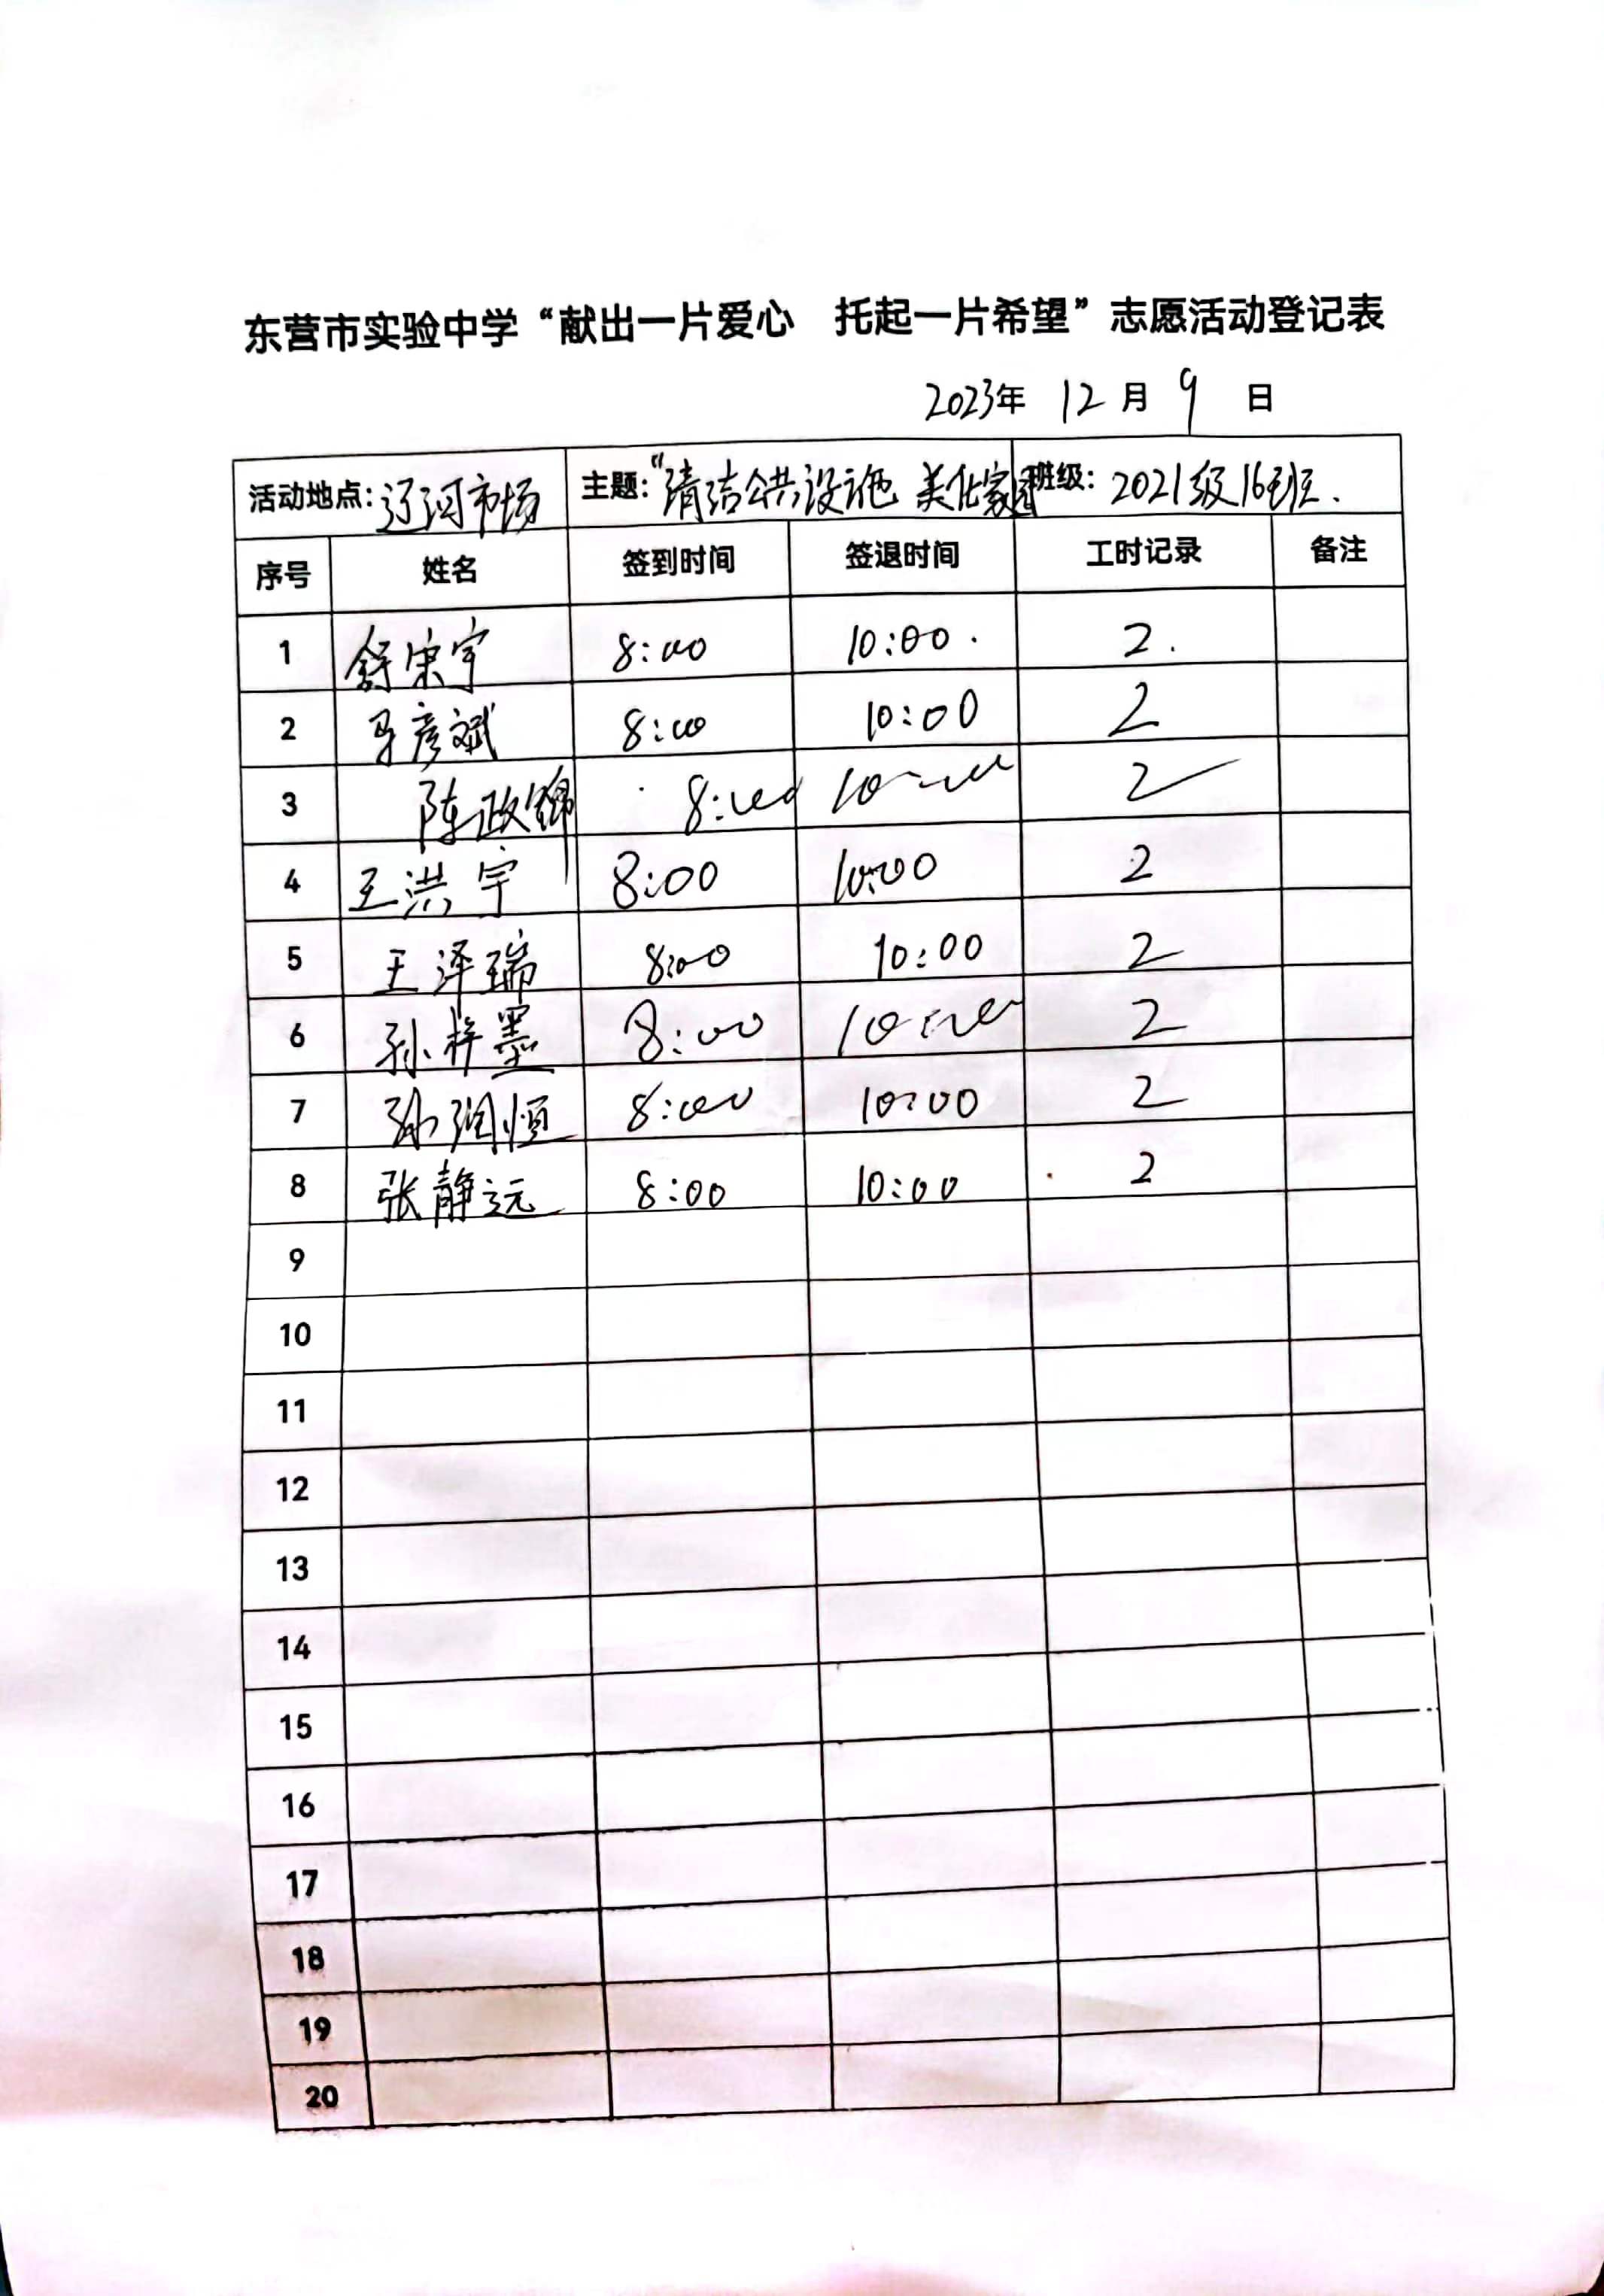 东营市实验中学“献出一片爱心　托起一片希望”志愿活动登记表
2023年 12 月 9 日
活动地点: 辽河市场 主题: “清洁公共设施 美化家园 班级: 2021级16班.
序号 姓名 签到时间 签退时间 工时记录 备注
1 舒宋宇 8:00 10:00. 2.
2 马彦斌 8:00 10:00 2
3 陈政锦 8:00 10:00 2
4 王洪宇 8:00 10:00 2
5 王泽瑞 8:00 10:00 2
6 孙梓墨 8:00 10:00 2
7 孙润恒 8:00 10:00 2
8 张静远 8:00 10:00 2
9
10
11
12
13
14
15
16
17
18
19
20